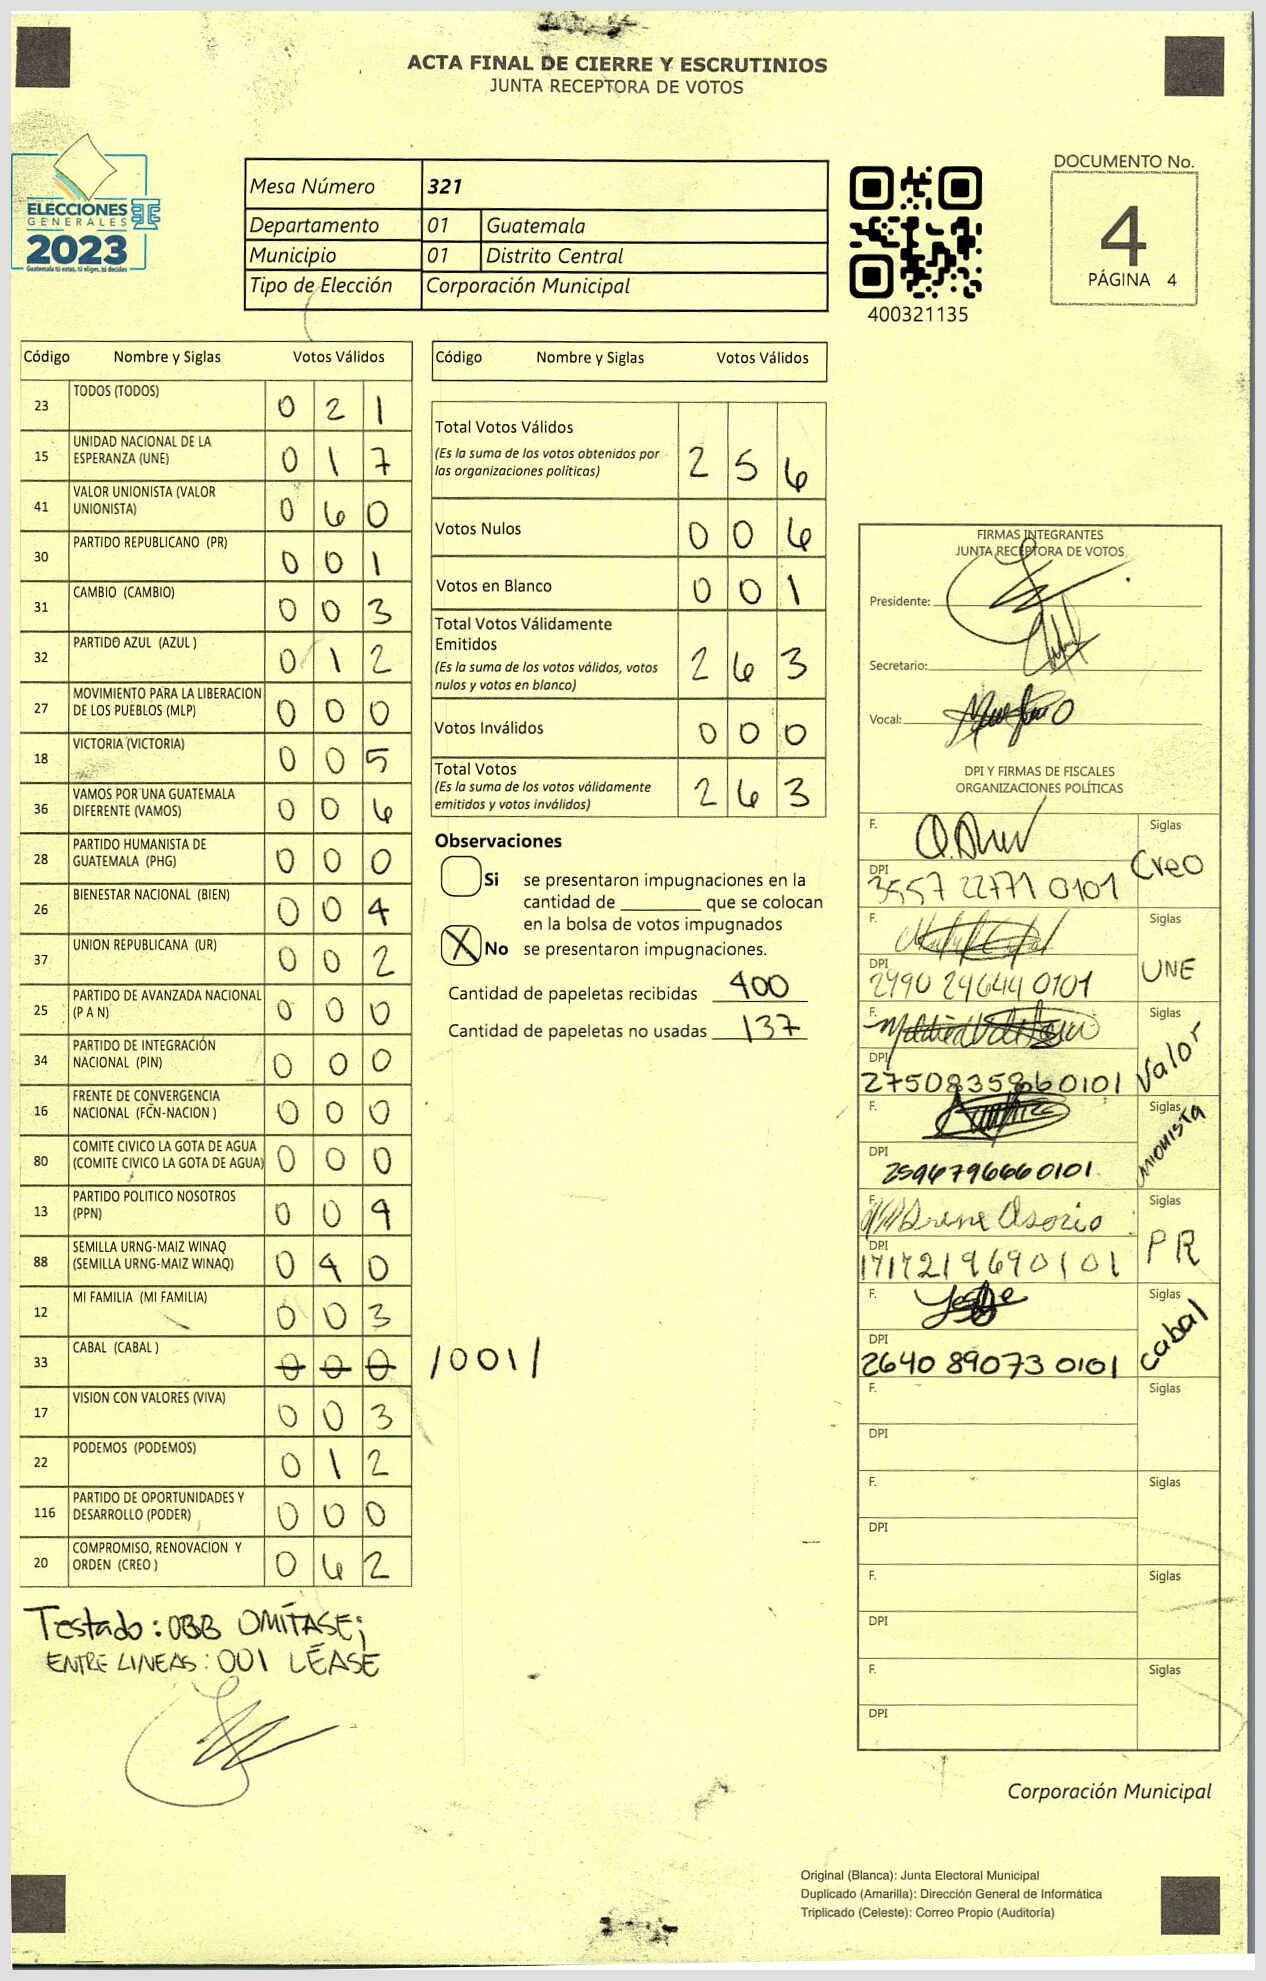 ACTA FINAL DE CIERRE Y ESCRUTINIOS
JUNTA RECEPTORA DE VOTOS
ELECCIONES
GENERALES
2023
Guatemala tú votas, tú eliges, tú decides
Mesa Número 321
Departamento 01 Guatemala
Municipio 01 Distrito Central
Tipo de Elección Corporación Municipal
400321135
DOCUMENTO No.
4
PÁGINA 4
Código Nombre y Siglas Votos Válidos
23 TODOS (TODOS) 0 2 1
15 UNIDAD NACIONAL DE LA
ESPERANZA (UNE) 0 1 7
41 VALOR UNIONISTA (VALOR
UNIONISTA) 0 6 0
30 PARTIDO REPUBLICANO (PR) 0 0 1
31 CAMBIO (CAMBIO) 0 0 3
32 PARTIDO AZUL (AZUL ) 0 1 2
27 MOVIMIENTO PARA LA LIBERACION
DE LOS PUEBLOS (MLP) 0 0 0
18 VICTORIA (VICTORIA) 0 0 5
36 VAMOS POR UNA GUATEMALA
DIFERENTE (VAMOS) 0 0 6
28 PARTIDO HUMANISTA DE
GUATEMALA (PHG) 0 0 0
26 BIENESTAR NACIONAL (BIEN) 0 0 4
37 UNION REPUBLICANA (UR) 0 0 2
25 PARTIDO DE AVANZADA NACIONAL
(P A N) 0 0 0
34 PARTIDO DE INTEGRACIÓN
NACIONAL (PIN) 0 0 0
16 FRENTE DE CONVERGENCIA
NACIONAL (FCN-NACION ) 0 0 0
80 COMITE CIVICO LA GOTA DE AGUA
(COMITE CIVICO LA GOTA DE AGUA) 0 0 0
13 PARTIDO POLITICO NOSOTROS
(PPN) 0 0 4
88 SEMILLA URNG-MAIZ WINAQ
(SEMILLA URNG-MAIZ WINAQ) 0 4 0
12 MI FAMILIA (MI FAMILIA) 0 0 3
33 CABAL (CABAL ) 0 0 0 /001/
17 VISION CON VALORES (VIVA) 0 0 3
22 PODEMOS (PODEMOS) 0 1 2
116 PARTIDO DE OPORTUNIDADES Y
DESARROLLO (PODER) 0 0 0
20 COMPROMISO, RENOVACION Y
ORDEN (CREO ) 0 6 2
Testado: OMÍTASE;
ENTRE LINEAS: 001 LÉASE
Código Nombre y Siglas Votos Válidos
Total Votos Válidos
(Es la suma de los votos obtenidos por
las organizaciones políticas) 2 5 6
Votos Nulos 0 0 6
Votos en Blanco 0 0 1
Total Votos Válidamente
Emitidos
(Es la suma de los votos válidos, votos
nulos y votos en blanco) 2 6 3
Votos Inválidos 0 0 0
Total Votos
(Es la suma de los votos válidamente
emitidos y votos inválidos) 2 6 3
Observaciones
Si se presentaron impugnaciones en la
cantidad de ________ que se colocan
en la bolsa de votos impugnados
X No se presentaron impugnaciones.
Cantidad de papeletas recibidas 400
Cantidad de papeletas no usadas 137
FIRMAS INTEGRANTES
JUNTA RECEPTORA DE VOTOS
Presidente:
Secretario:
Vocal:
DPI Y FIRMAS DE FISCALES
ORGANIZACIONES POLÍTICAS
F. Siglas
Creo
DPI
3557 22771 0101
F. Siglas
UNE
DPI
2990 24644 0101
F. Siglas
Valor
DPI
F. Siglas
unionista
DPI
2596796660101
F. Irene Osorio Siglas
PR
DPI
1717219690101
F. Siglas
cabal
DPI
2640 89073 0101
F. Siglas
DPI
F. Siglas
DPI
F. Siglas
DPI
F. Siglas
DPI
Corporación Municipal
Original (Blanca): Junta Electoral Municipal
Duplicado (Amarilla): Dirección General de Informática
Triplicado (Celeste): Correo Propio (Auditoría)